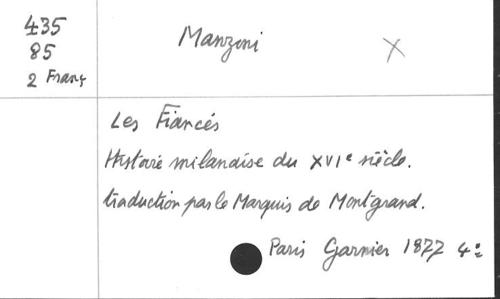 435
85
2 Franç
Manzoni
X
Les Fiancés
Histoire milanaise du XVIe siècle.
traduction par le Marquis de Montgrand.
Paris Garnier 1877 4º